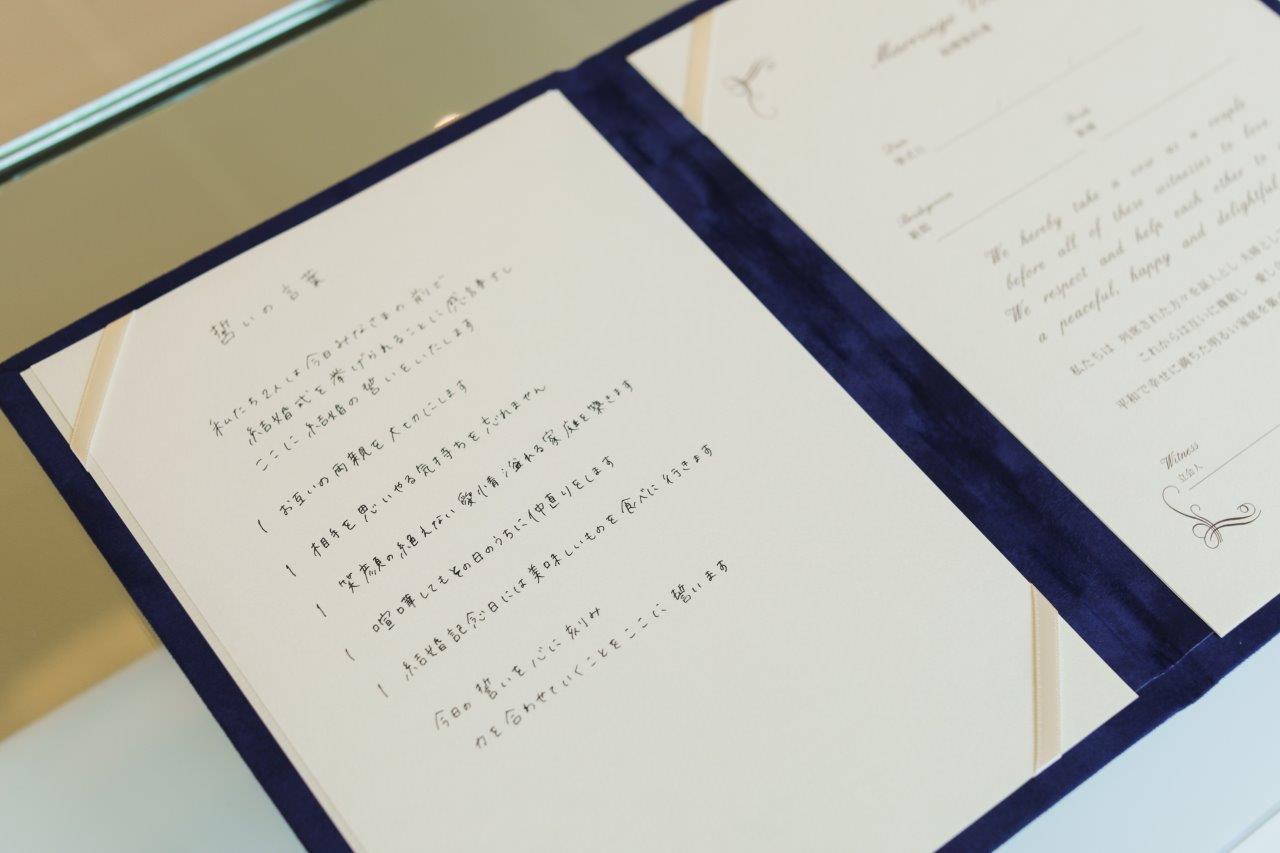 誓いの言葉
私たち2人は今日みなさまの前で
結婚式を挙げられることに感謝し
ここに結婚の誓いをいたします
1 お互いの両親を大切にします
1 相手を思いやる気持ちを忘れません
1 笑顔の絶えない愛情溢れる家庭を築きます
1 喧嘩してもその日のうちに仲直りをします
1 結婚記念日には美味しいものを食べに行きます
今日の誓いを心に刻み
力を合わせていくことをここに誓います
Marriage
Date
挙式日
Bride
新婦
Bridegroom
新郎
We hereby take a vow as a couple
before all of these witnesses to love
We respect and help each other to
a peaceful, happy and delightful
私たちは 列席された方々を証人とし 夫婦とし
これからは互いに尊敬し 愛し
平和で幸せに満ちた明るい家庭を築
Witness
立会人